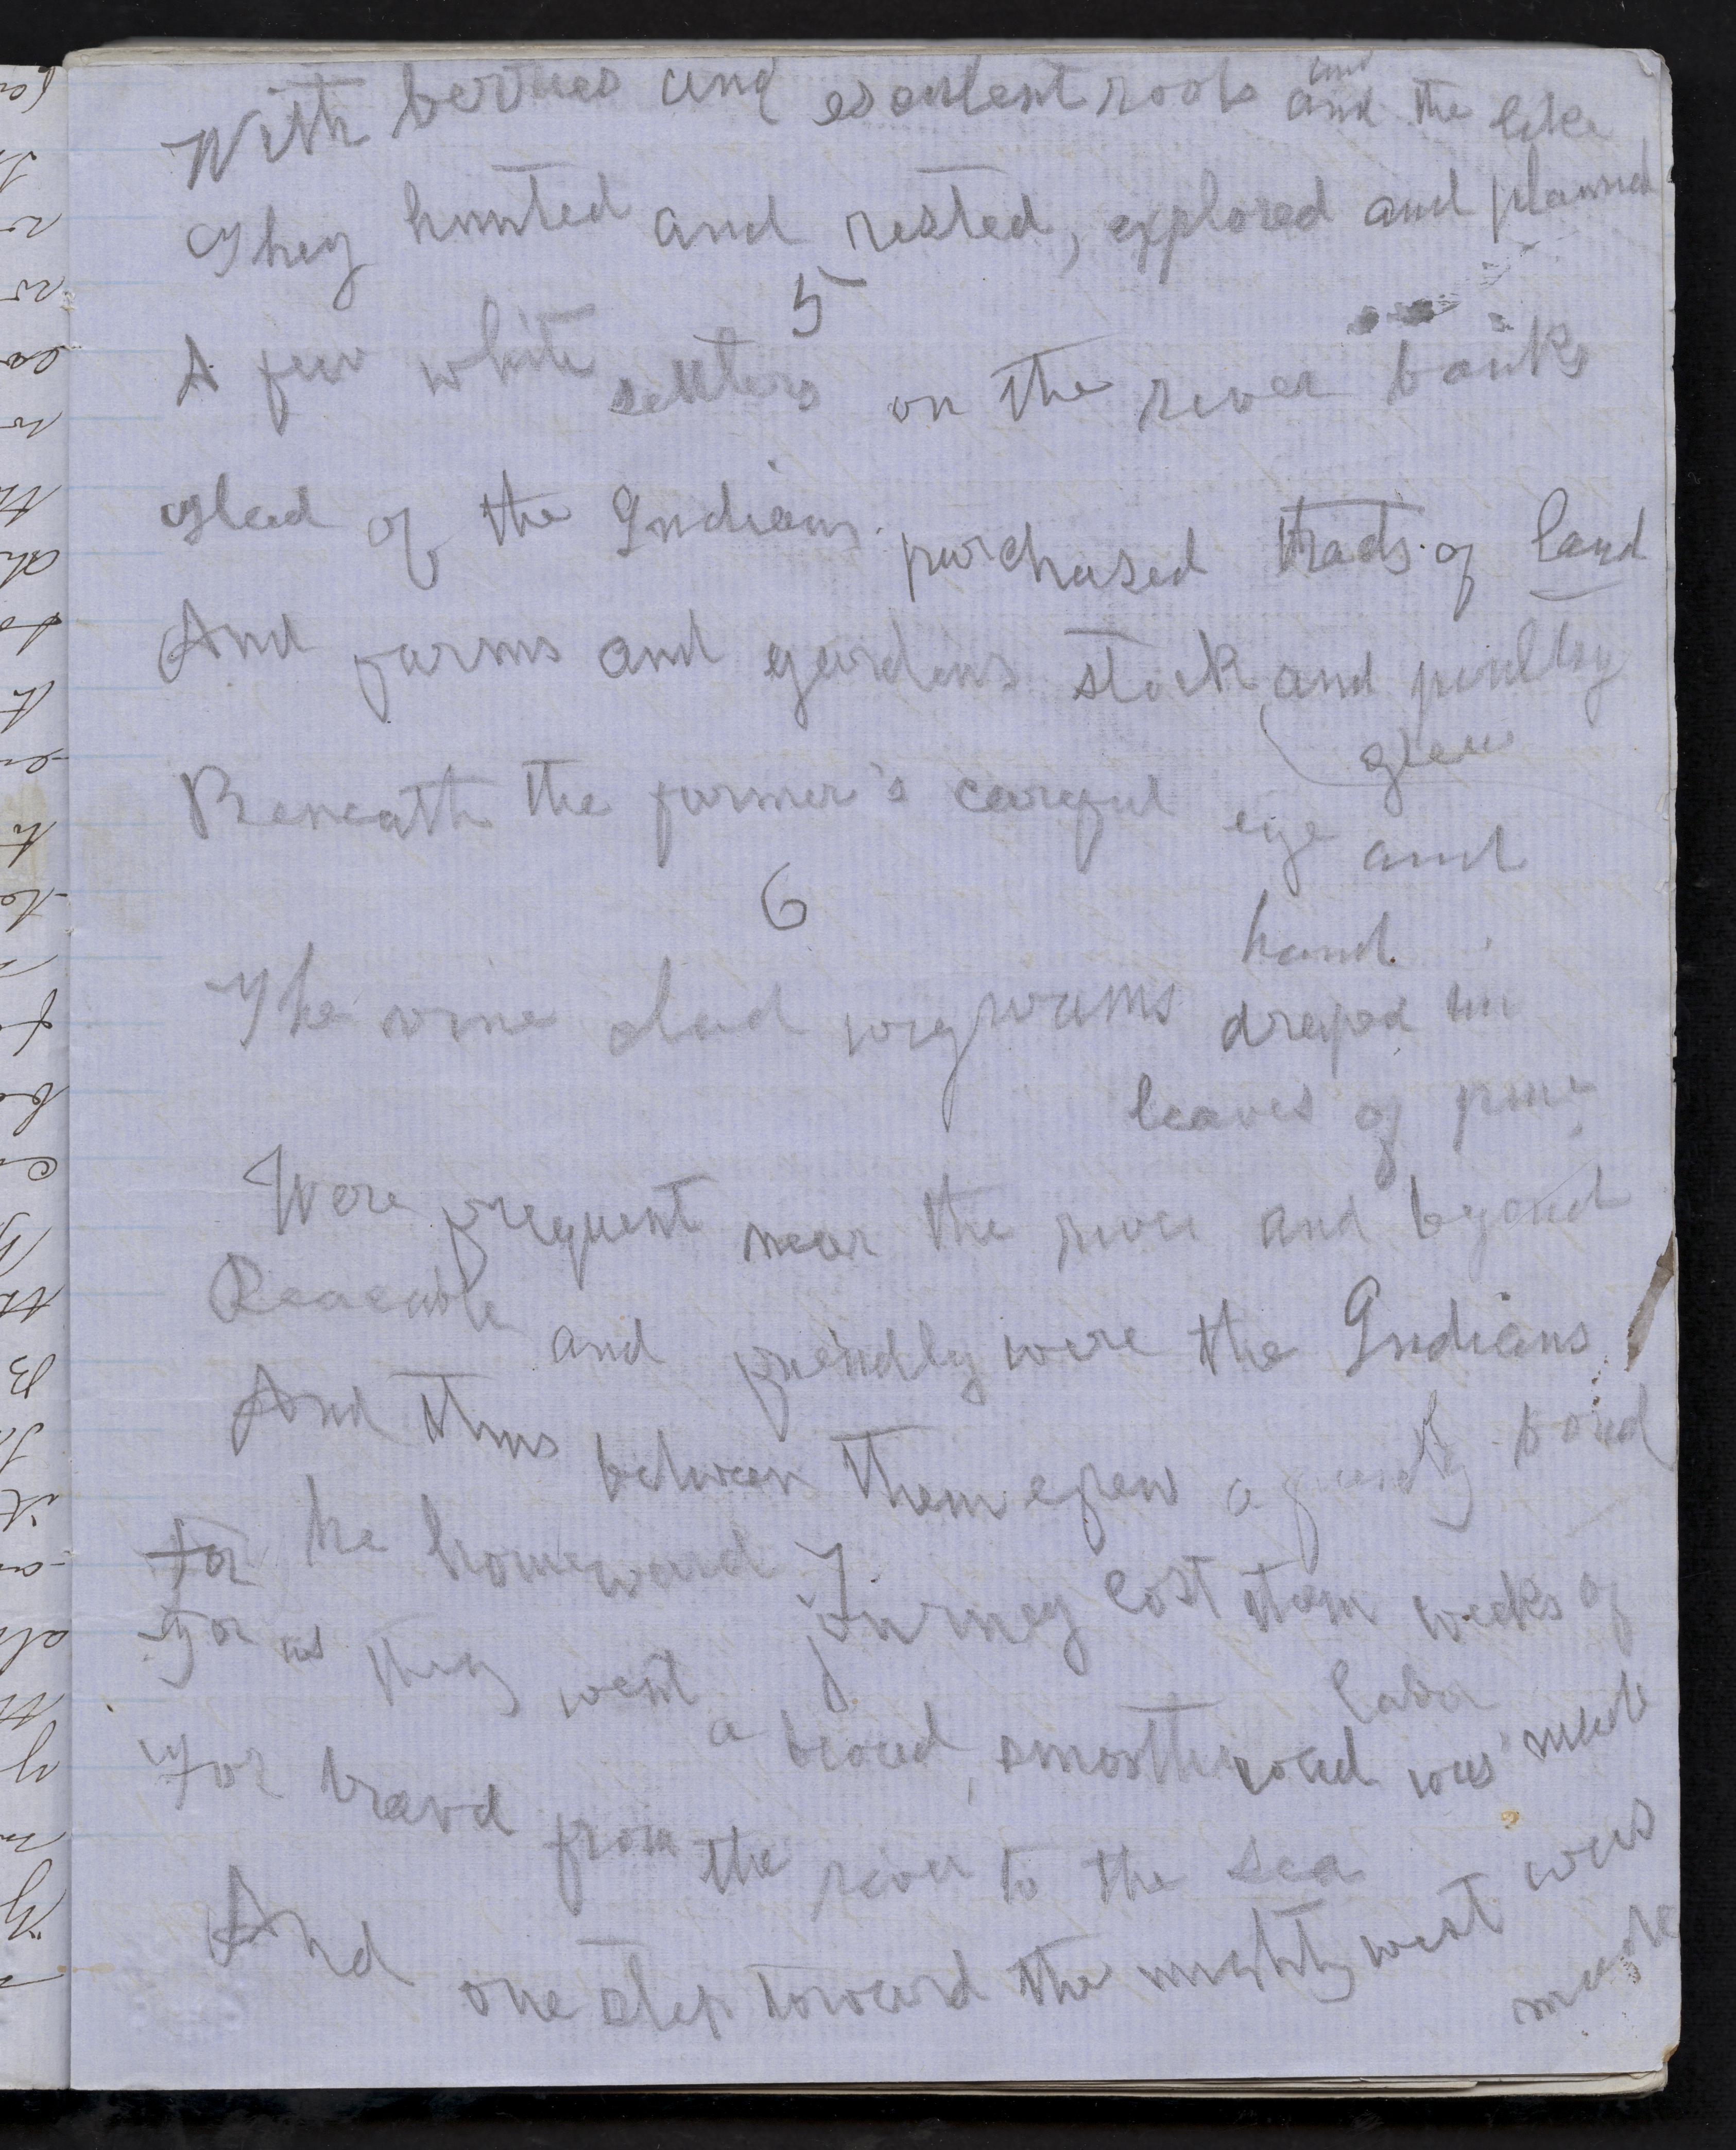 With berries and esculent roots and and the like
They hunted and rested, explored and planned
5
A few white settlers on the river banks
Glad of the Indians purchased tracts of land
And farms and gardens stock and poultry
grew
Beneath the farmer's careful eye and
hand
6
The vine clad wigwams draped in
leaves of pine
Were frequent near the river and beyond
Peaceable and friendly were the Indians
And thus between them grew a friendly bond
7
For he homeward journey cost them weeks of
labor
For as they went a broad, smooth road was made
For travel from the river to the sea
And one step toward the mighty west was
made